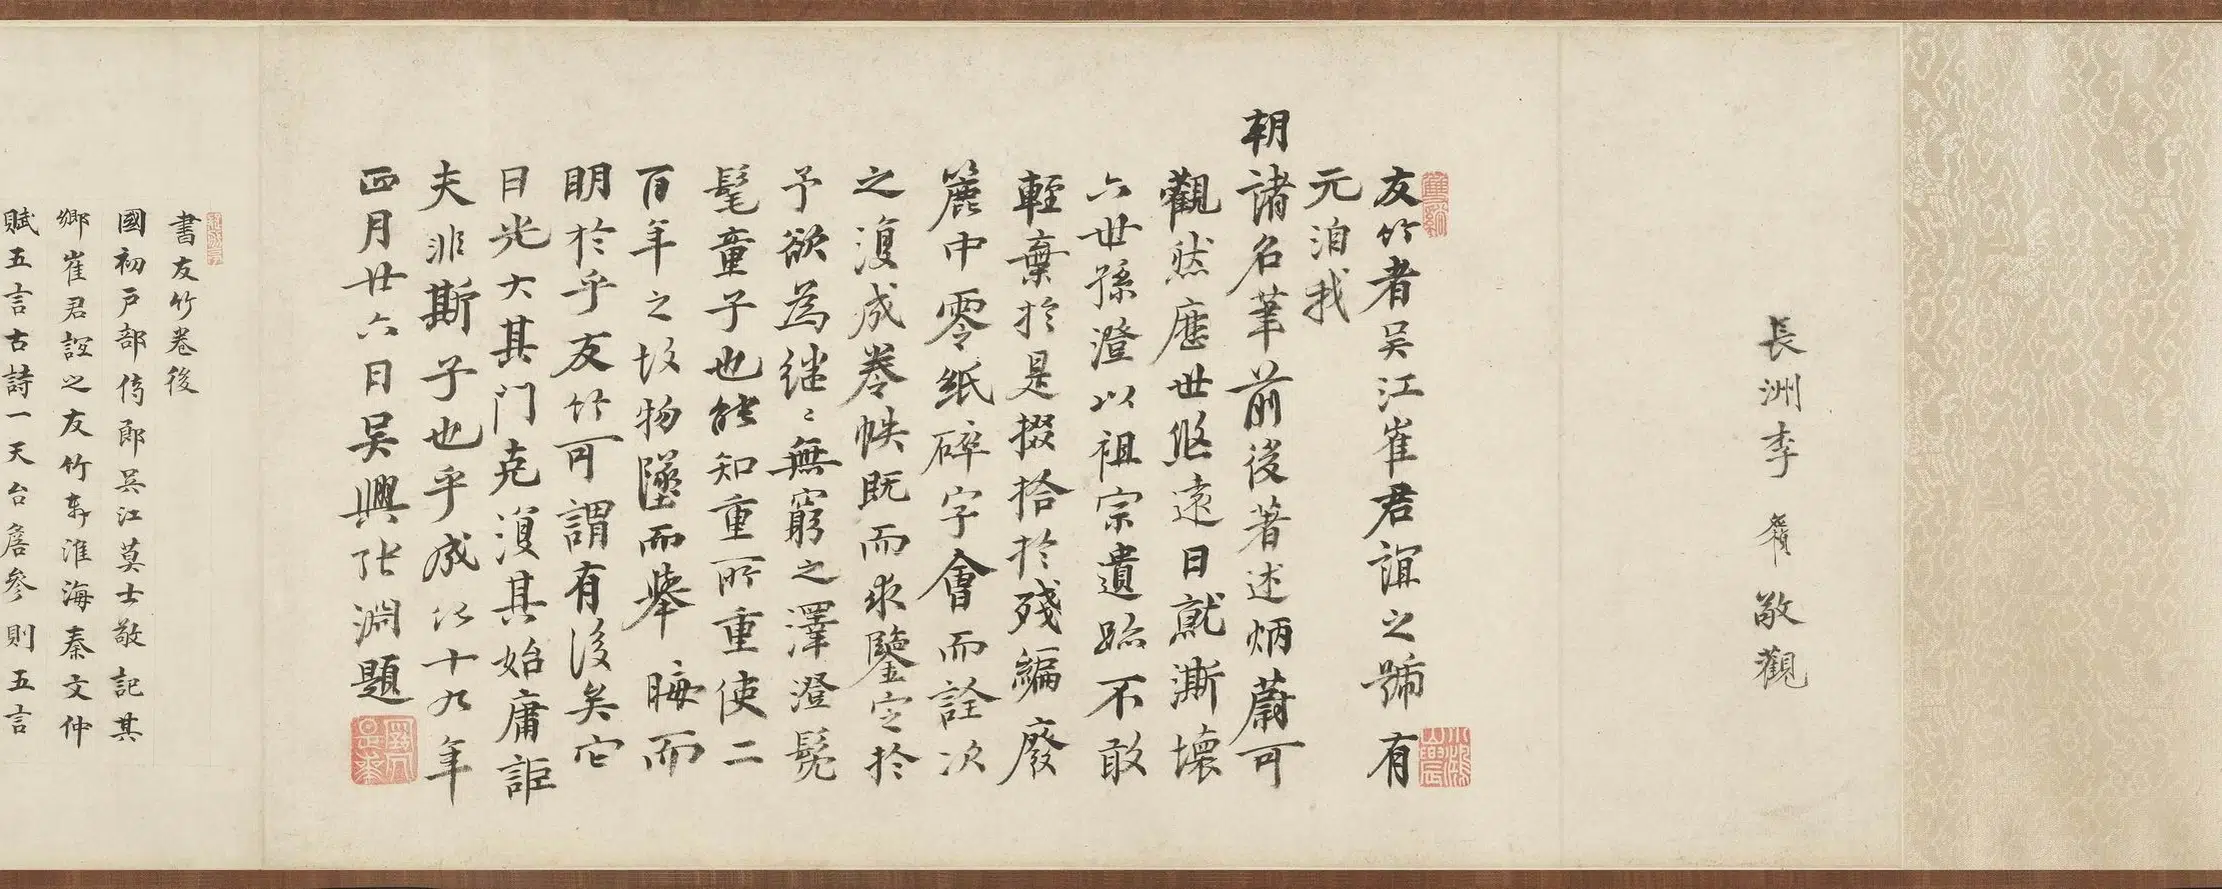 長洲李 敬觀
友竹者吴江崔君誼之號有
元洎我
朝諸名筆前後著述炳蔚可
觀然歷世既遠日就漸壞
六世孫澄以祖宗遺跡不敢
輕棄於是掇拾於殘編廢
簏中零紙碎字會而詮次
之復成卷帙既而求鑒定於
予欲為繼繼無窮之澤澄髡
髦童子也能知重所重使二
百年之故物墜而舉晦而
明於乎友竹可謂有後矣它
日光大其門克復其始庸詎
夫非斯子也乎成化十九年
四月廿六日吴興張淵題
書友竹卷後
國初戶部侍郎吳江莫士敬記其
鄉崔君誼之友竹軒淮海秦文仲
賦五言古詩一天台詹參則五言